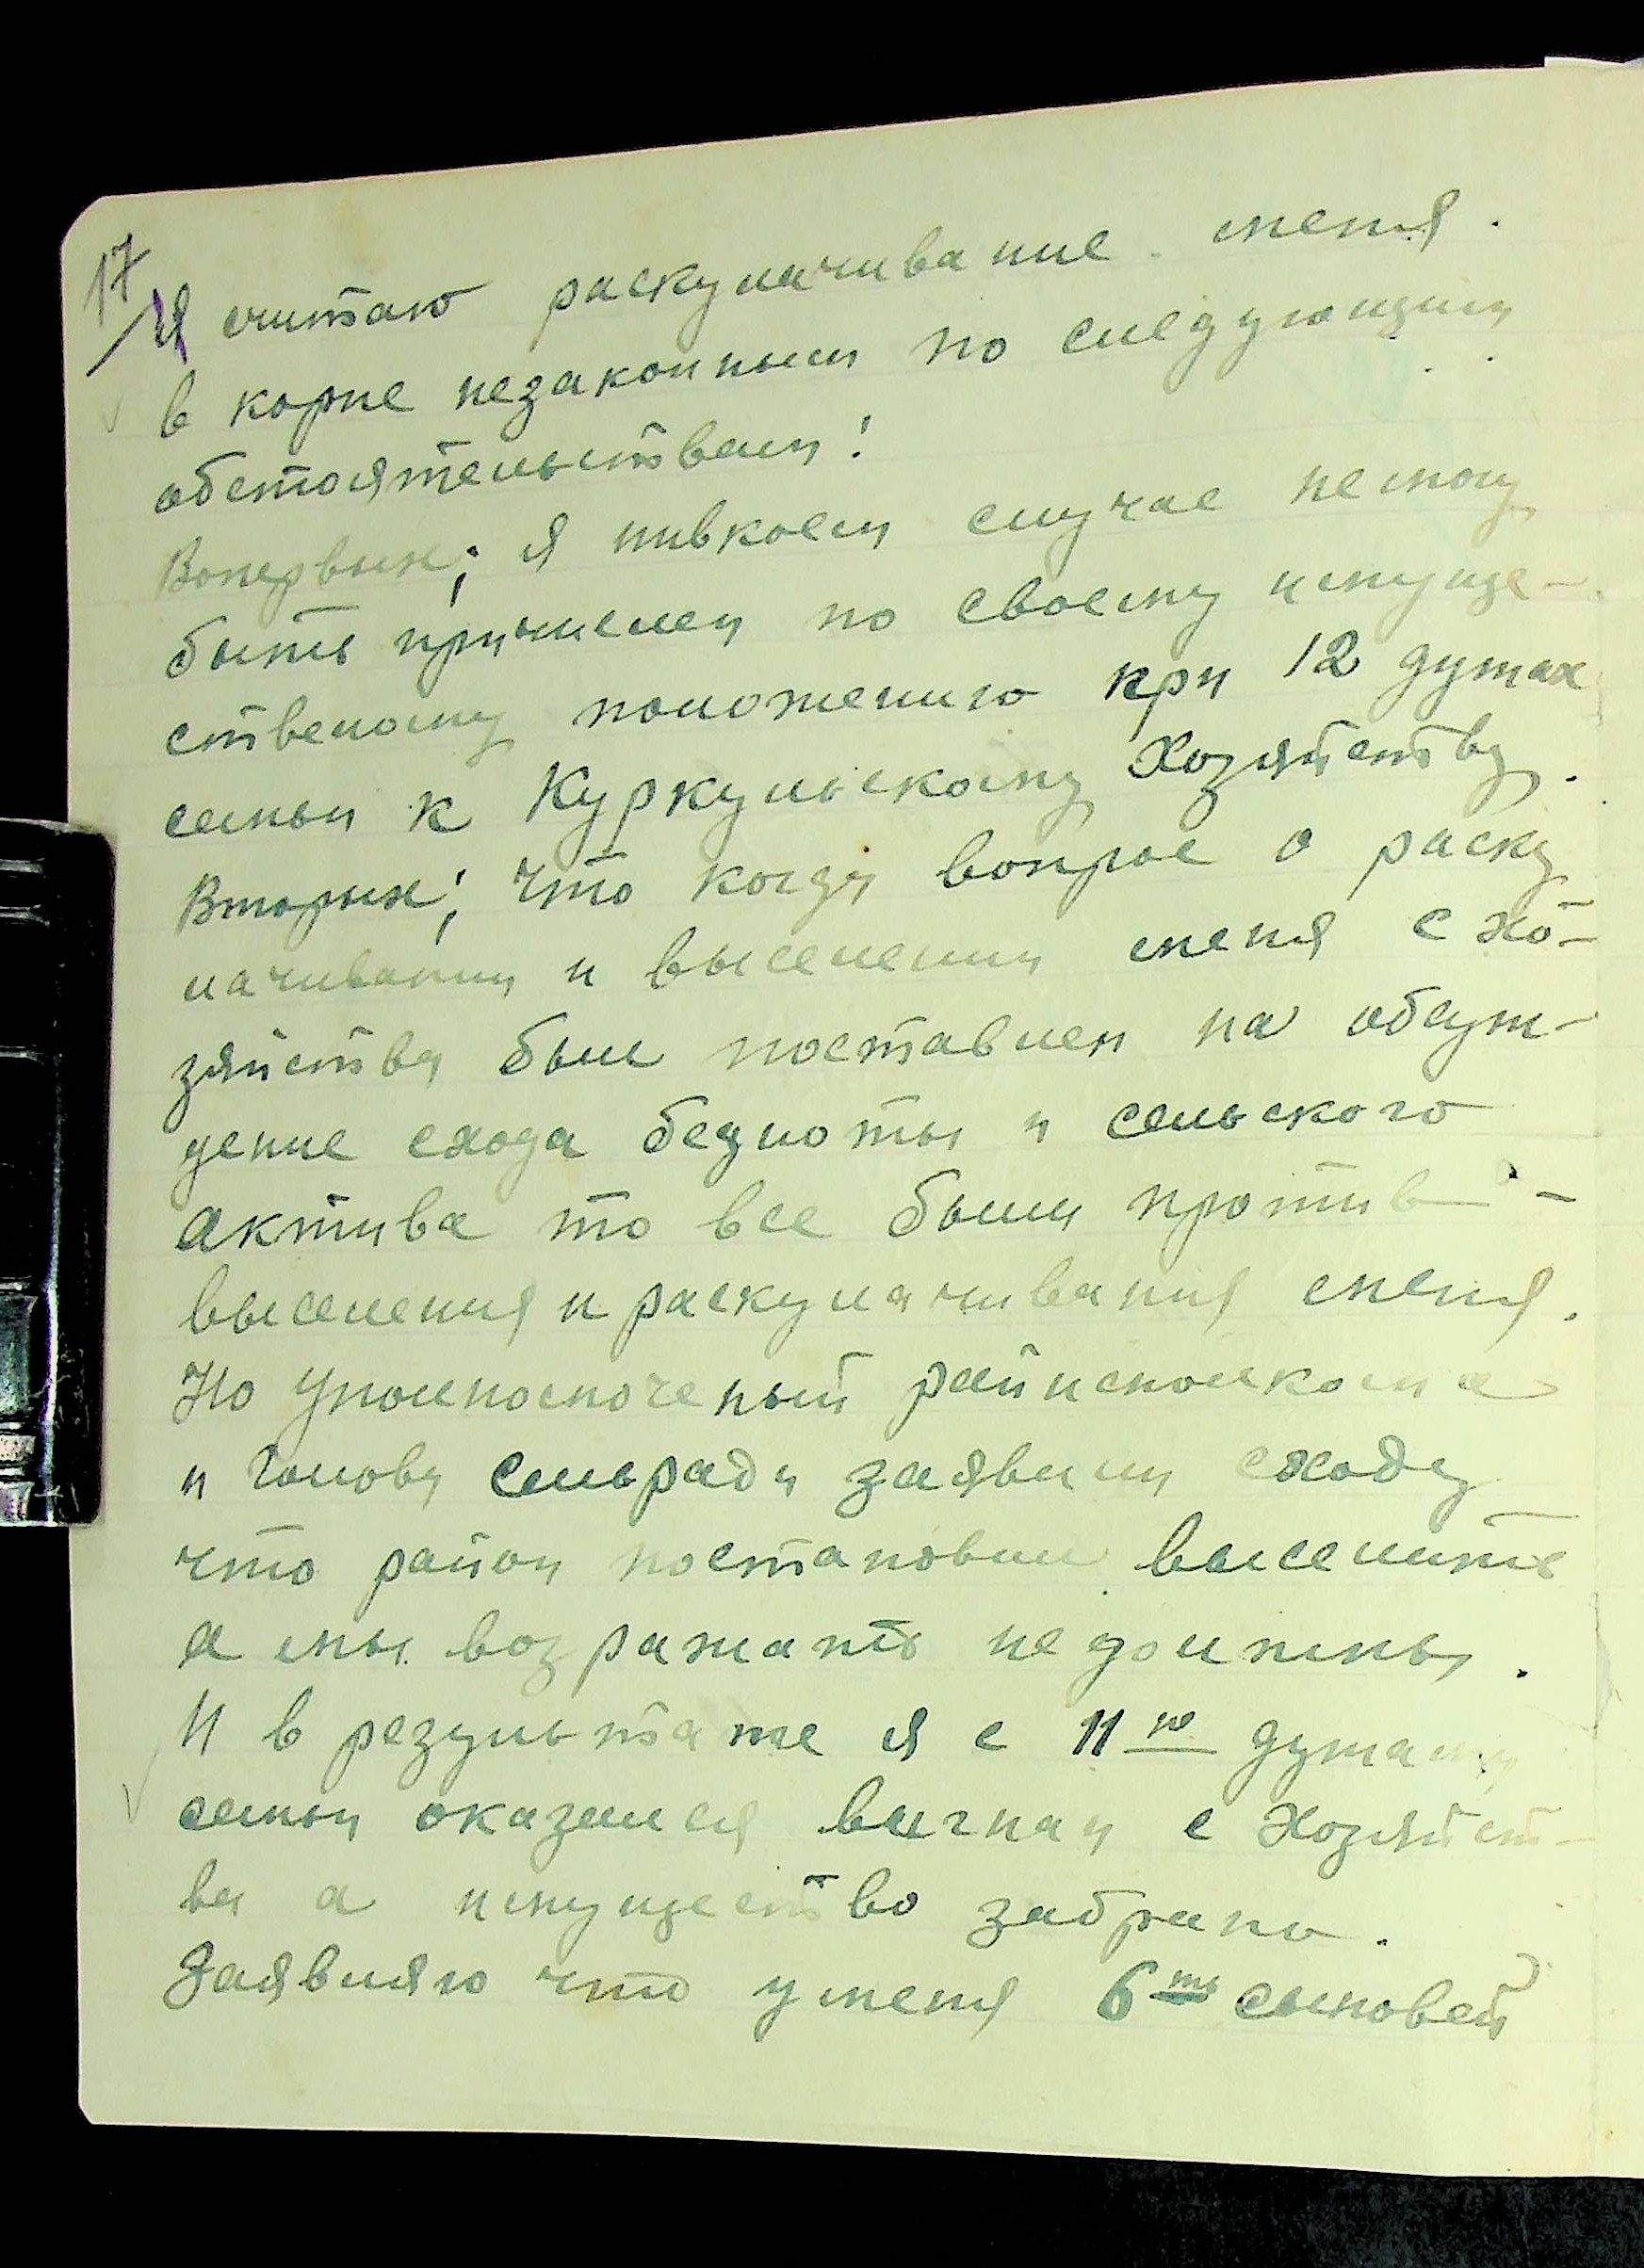 17
Я считаю раскулачивание меня
в корне незаконным по следующим
обстоятельствам:
Вопервых; я нивкоем случае немогу
быть причислен по своему имуще-
ственому положению при 12 душах
семьи к Куркульскому Хозяйству.
Вторых; что когда вопрос о раску
лачивании и выселении меня с хо-
зяйства был поставлен на обсуж-
дение схода бедноты и сельского
актива то все были против -
выселения и раскулачивания меня.
Но Уполномоченый райисполкома
и голова сельради заявили сходу
что район постановил выселить
а мы возражать недолжны.
И в результате я с 11ю душами
семьи оказался выгнан с Хозяйст-
ва а имущество забрано.
Заявляю что уменя 6ть сыновей